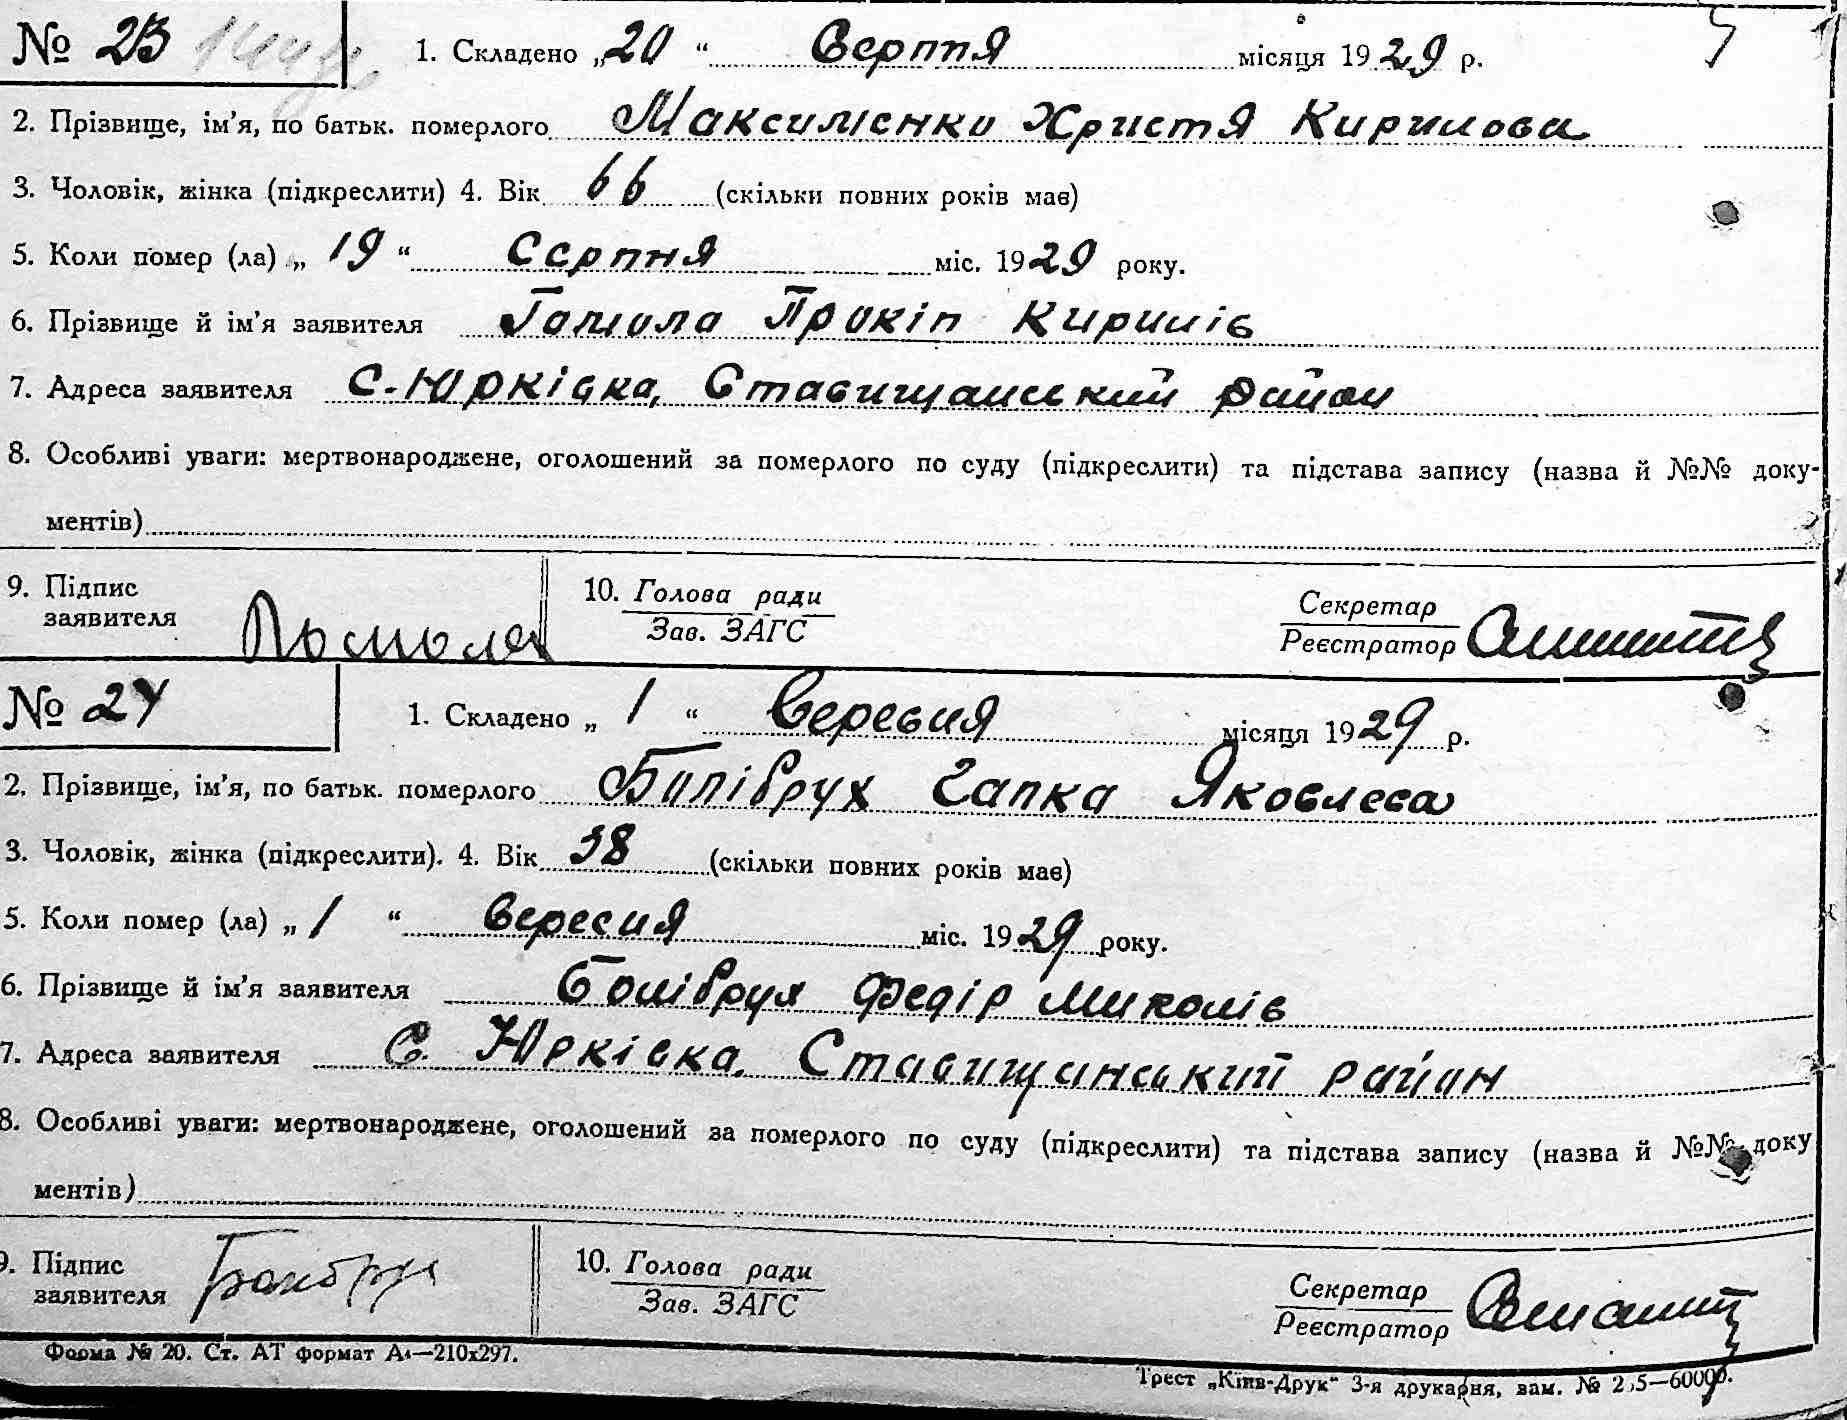 № 23
1. Складено „20“ Серпня місяця 1929 р.
2. Прізвище, ім'я, по батьк. померлого Максименко Христя Кирилова
3. Чоловік, жінка (підкреслити) 4. Вік 66 (скільки повних років має)
5. Коли помер (ла) „19“ Серпня міс. 1929 року.
6. Прізвище й ім'я заявителя Гамола Прокіп Кирилів
7. Адреса заявителя С. Юрківка, Ставищанський район
8. Особливі уваги: мертвонароджене, оголошений за померлого по суду (підкреслити) та підстава запису (назва й №№ доку-
ментів)
9. Підпис
заявителя
10. Голова ради
Зав. ЗАГС
Секретар
Реєстратор
№ 24
1. Складено „1“ Вересня місяця 1929 р.
2. Прізвище, ім'я, по батьк. померлого Болібрух Гапка Яковлева
3. Чоловік, жінка (підкреслити). 4. Вік 38 (скільки повних років має)
5. Коли помер (ла) „1“ Вересня міс. 1929 року.
6. Прізвище й ім'я заявителя Болібрух Федір Миколів
7. Адреса заявителя С. Юрківка. Ставищанський район
8. Особливі уваги: мертвонароджене, оголошений за померлого по суду (підкреслити) та підстава запису (назва й №№ доку
ментів)
9. Підпис
заявителя
10. Голова ради
Зав. ЗАГС
Секретар
Реєстратор
Форма № 20. Ст. АТ формат А4—210х297.
Трест „Київ-Друк“ 3-я друкарня, зам. №